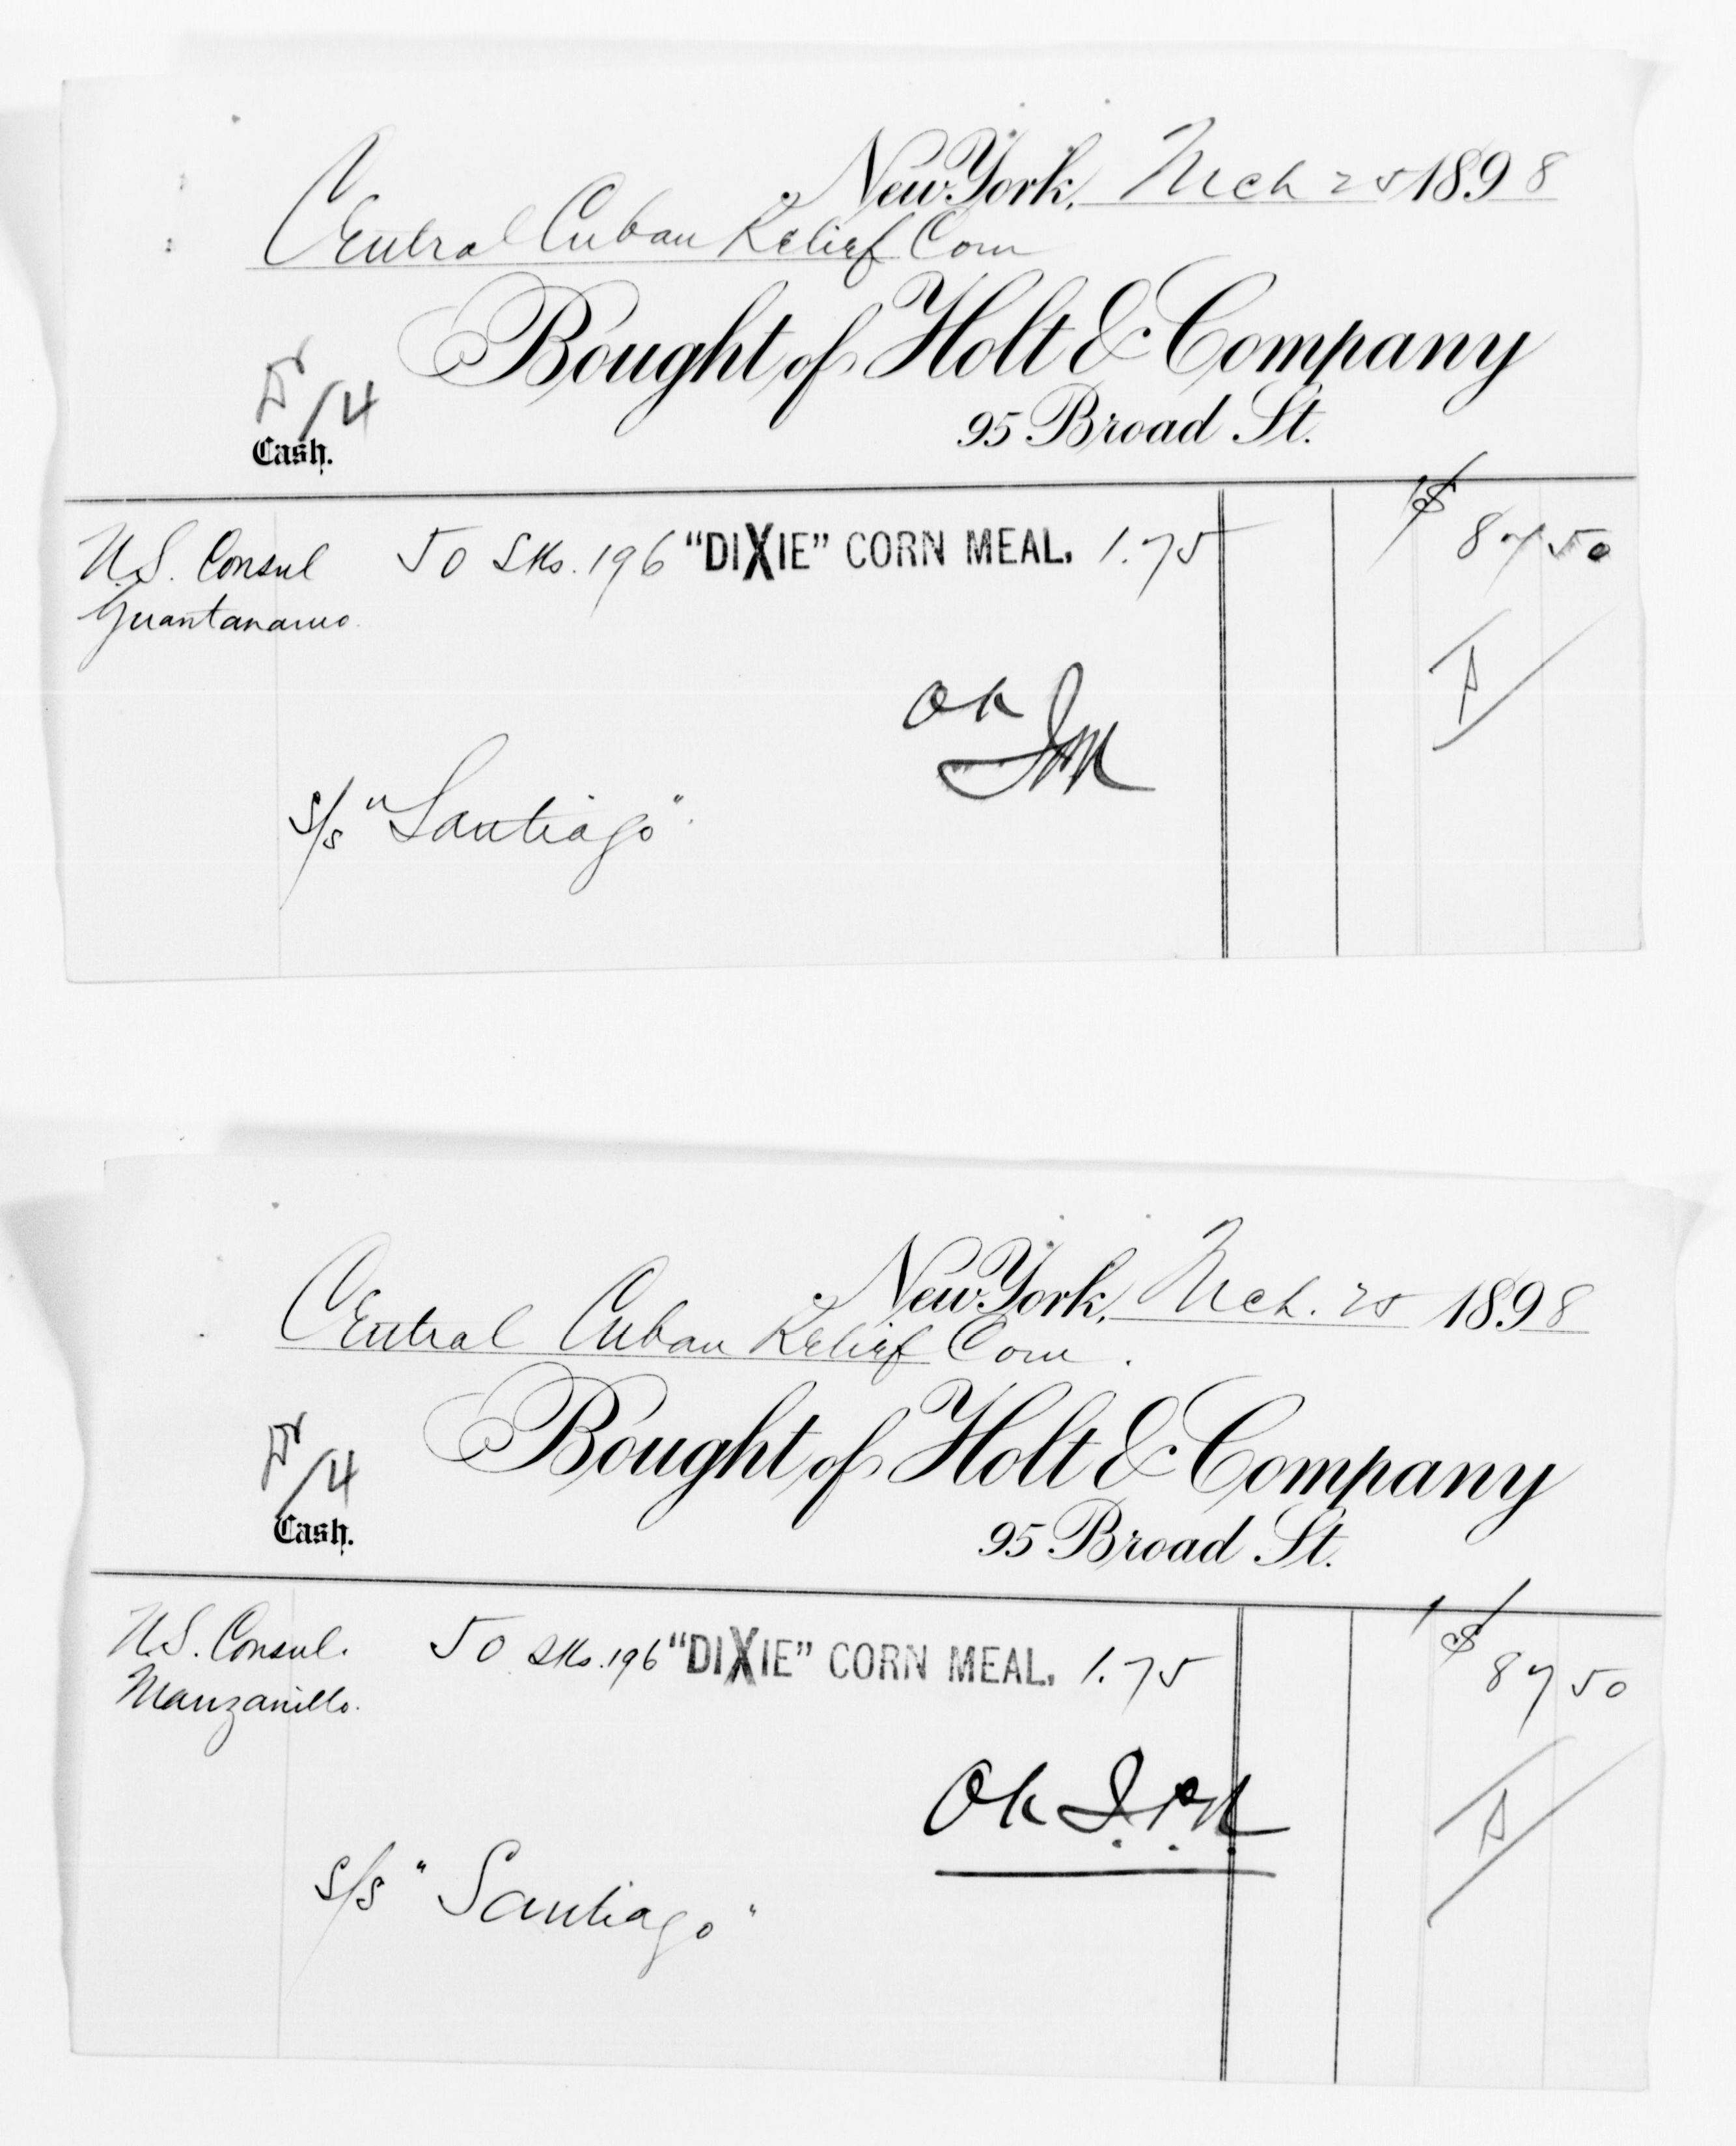 New York, Mch 25 1898
Central Cuban Relief Com
Bought of Holt & Company
95 Broad St.
/4
Cash.
$
U.S. Consul 50 Sks. 196 "DIXIE" CORN MEAL. 1.75 87 50
Guantanamo.
OK
s/s "Santiago".
New York, Mch. 25 1898
Central Cuban Relief Com.
Bought of Holt & Company
95 Broad St.
/4
Cash.
$
U.S. Consul. 50 Sks. 196 "DIXIE" CORN MEAL. 1.75 87 50
Manzanillo.
Ok
s/s "Santiago"